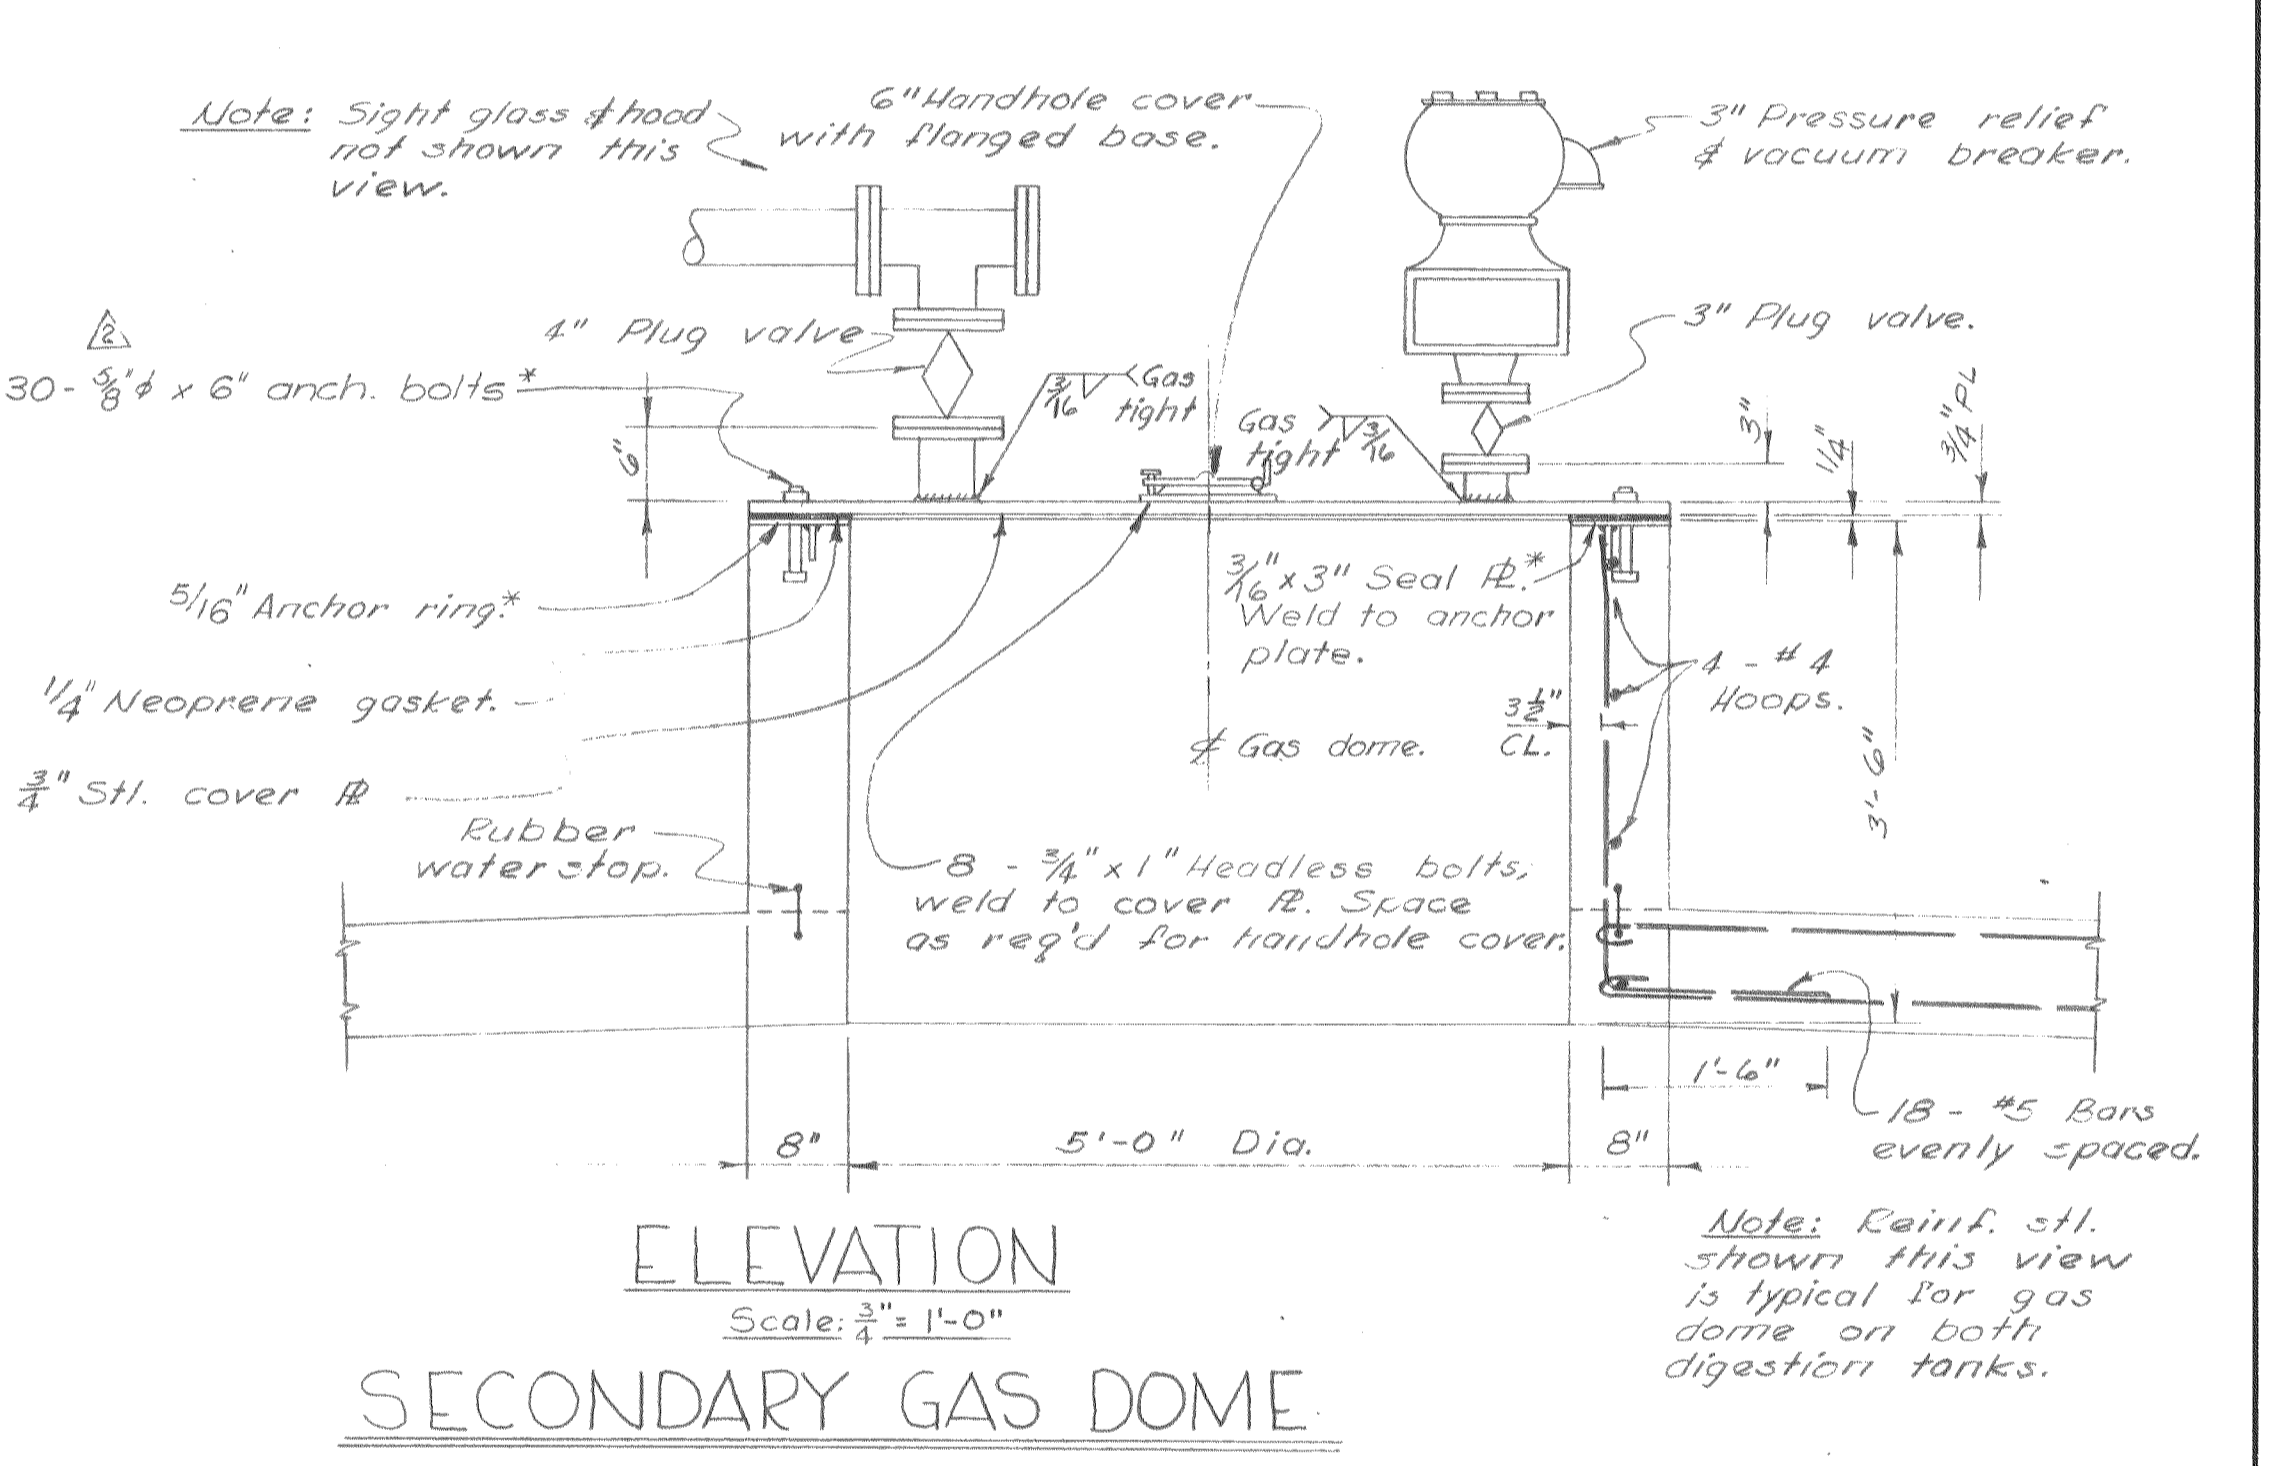 Note: Sight glass & hood
not shown this
view.
6" Handhole cover
with flanged base.
3" Pressure relief
& vacuum breaker.
2
4" Plug valve
3" Plug valve.
30 - 5/8" ϕ x 6" anch. bolts*
3/16
Gas
tight
Gas
tight
3/16
6"
3"
1/4"
3/4" PL
5/16" Anchor ring.*
3/16" x 3" Seal PL.*
Weld to anchor
plate.
1/4" Neoprene gasket.
4 - #4
Hoops.
3 1/2"
CL.
℄ Gas dome.
3'-6"
3/4" Stl. cover PL
Rubber
waterstop.
8 - 3/4" x 1" Headless bolts,
weld to cover PL. Space
as req'd for handhole cover.
1'-6"
18 - #5 Bars
evenly spaced.
8"
5'-0" Dia.
8"
ELEVATION
Scale: 3/4" = 1'-0"
SECONDARY GAS DOME.
Note: Reinf. stl.
shown this view
is typical for gas
dome on both
digestion tanks.